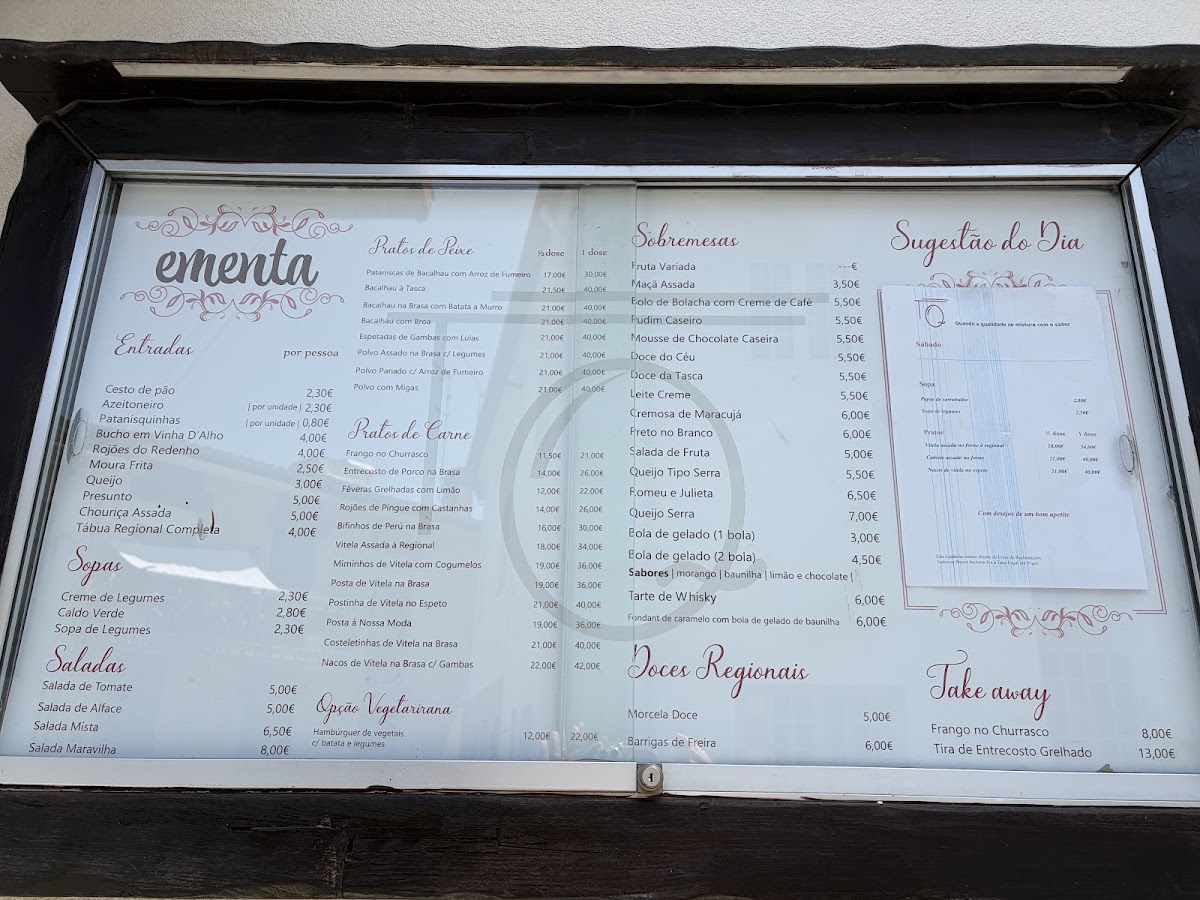 ementa
Entradas por pessoa
Cesto de pão 2,30€
Azeitoneiro | por unidade | 2,30€
Patanisquinhas | por unidade | 0,80€
Bucho em Vinha D'Alho 4,00€
Rojões do Redenho 4,00€
Moura Frita 2,50€
Queijo 3,00€
Presunto 5,00€
Chouriça Assada 5,00€
Tábua Regional Completa 4,00€
Sopas
Creme de Legumes 2,30€
Caldo Verde 2,80€
Sopa de Legumes 2,30€
Saladas
Salada de Tomate 5,00€
Salada de Alface 5,00€
Salada Mista 6,50€
Salada Maravilha 8,00€
Pratos de Peixe ½ dose 1 dose
Pataniscas de Bacalhau com Arroz de Fumeiro 17,00€ 30,00€
Bacalhau à Tasca 21,50€ 40,00€
Bacalhau na Brasa com Batata a Murro 21,00€ 40,00€
Bacalhau com Broa 21,00€ 40,00€
Espetadas de Gambas com Lulas 21,00€ 40,00€
Polvo Assado na Brasa c/ Legumes 21,00€ 40,00€
Polvo Panado c/ Arroz de Fumeiro 21,00€ 40,00€
Polvo com Migas 21,00€ 40,00€
Pratos de Carne
Frango no Churrasco 11,50€ 21,00€
Entrecosto de Porco na Brasa 14,00€ 26,00€
Fêveras Grelhadas com Limão 12,00€ 22,00€
Rojões de Pingue com Castanhas 14,00€ 26,00€
Bifinhos de Perú na Brasa 16,00€ 30,00€
Vitela Assada à Regional 18,00€ 34,00€
Miminhos de Vitela com Cogumelos 19,00€ 36,00€
Posta de Vitela na Brasa 19,00€ 36,00€
Postinha de Vitela no Espeto 21,00€ 40,00€
Posta à Nossa Moda 19,00€ 36,00€
Costeletinhas de Vitela na Brasa 21,00€ 40,00€
Nacos de Vitela na Brasa c/ Gambas 22,00€ 42,00€
Opção Vegetarirana
Hambúrguer de vegetais
c/ batata e legumes 12,00€ 22,00€
Sobremesas
Fruta Variada ---€
Maçã Assada 3,50€
Bolo de Bolacha com Creme de Café 5,50€
Pudim Caseiro 5,50€
Mousse de Chocolate Caseira 5,50€
Doce do Céu 5,50€
Doce da Tasca 5,50€
Leite Creme 5,50€
Cremosa de Maracujá 6,00€
Preto no Branco 6,00€
Salada de Fruta 5,00€
Queijo Tipo Serra 5,50€
Romeu e Julieta 6,50€
Queijo Serra 7,00€
Bola de gelado (1 bola) 3,00€
Bola de gelado (2 bola) 4,50€
Sabores | morango | baunilha | limão e chocolate |
Tarte de Whisky 6,00€
Fondant de caramelo com bola de gelado de baunilha 6,00€
Doces Regionais
Morcela Doce 5,00€
Barrigas de Freira 6,00€
Sugestão do Dia
TQ
Quando a qualidade se mistura com o sabor
Sábado
Sopa
Papas de sarrabulho 2,80€
Sopa de legumes 2,30€
Pratos: ½ dose 1 dose
Vitela assada no forno à regional 18,00€ 34,00€
Cabrito assado no forno 21,00€ 40,00€
Nacos de vitela no espeto 21,00€ 40,00€
Com desejos de um bom apetite
Take away
Frango no Churrasco 8,00€
Tira de Entrecosto Grelhado 13,00€